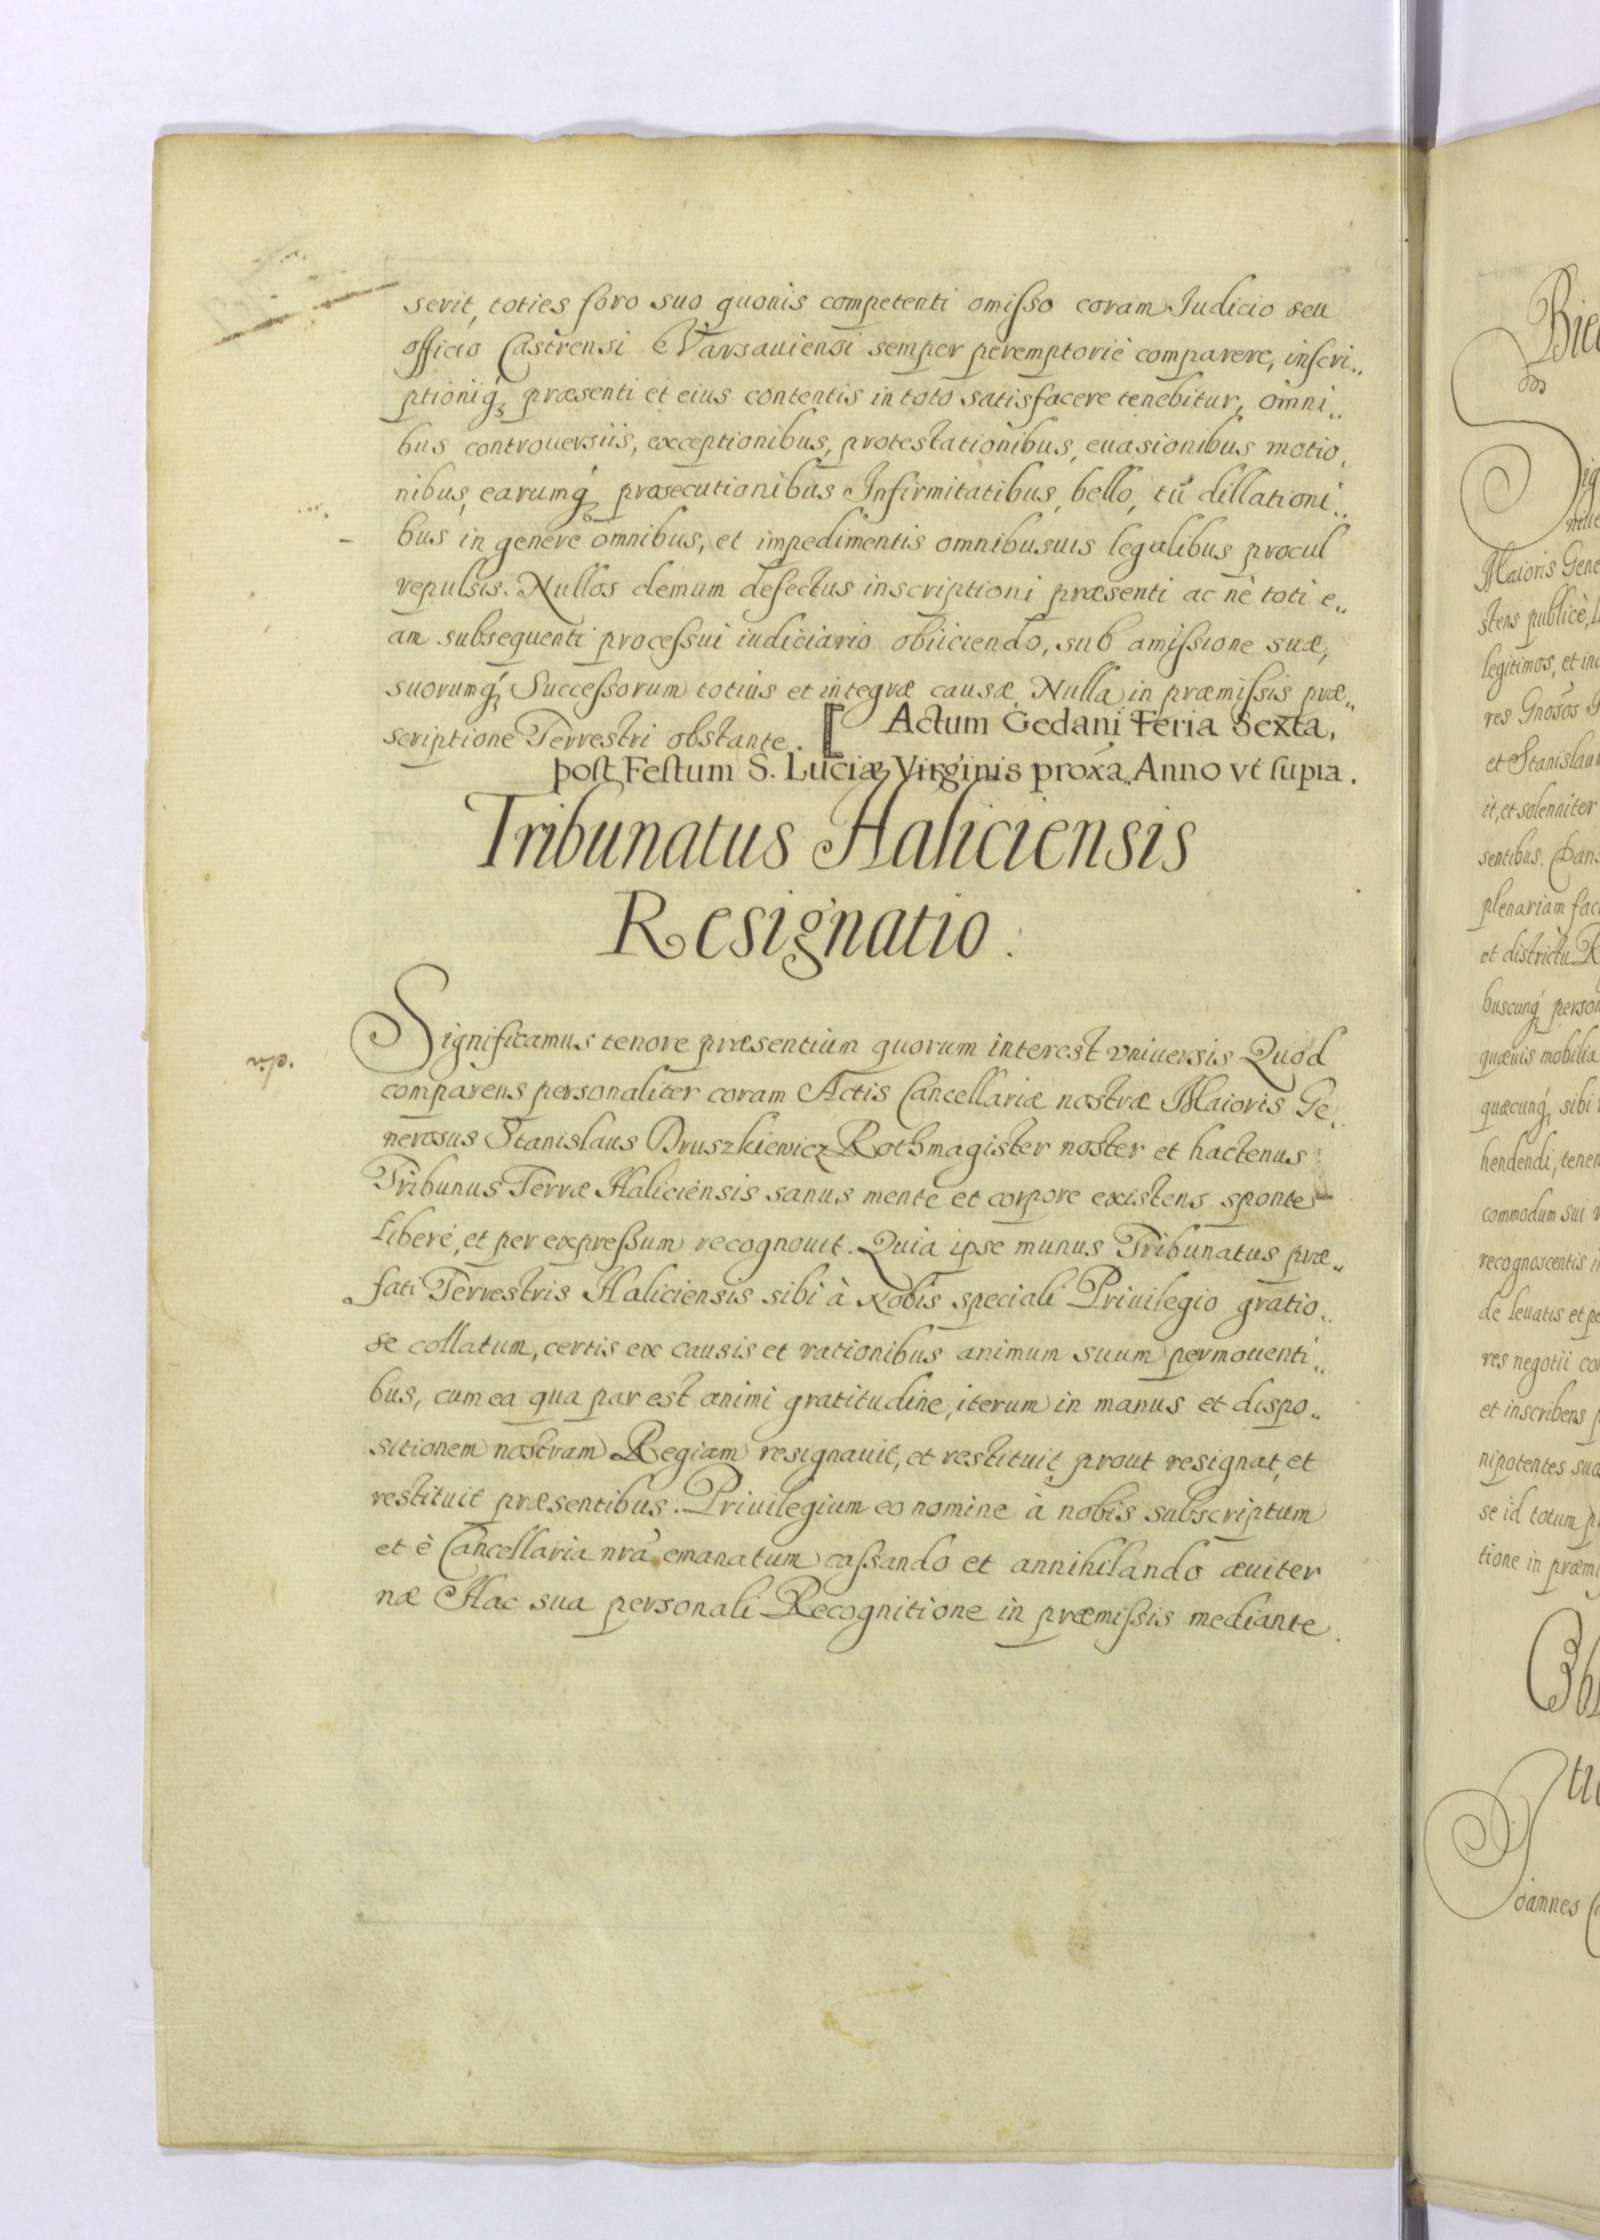 serit, toties foro suo quouis competenti omisso coram Iudicio seu
officio Castrensi Varsauiensi semper peremptoriè comparere, inscri..
ptioniq́ꝫ præsenti et eius contentis in toto satisfacere tenebitur, omni..
bus controuersiis, exceptionibus, protestationibus, euasionibus motio,
nibus, earumq́ꝫ prosecutionibus Infirmitatibus, bello, tũ dillationi..
bus in genere omnibus, et impedimentis omnibusuis legalibus procul
repulsis. Nullos demum defectus inscriptioni præsenti ac nè toti e..
am subsequenti processui iudiciario obiiciendo, sub amissione suæ,
suorumq́ꝫ Successorum totius et integræ causæ. Nulla in præmissis præ..
scriptione Terrestri obstante. [ Actum Gedani Feria Sexta,
post Festum S. Luciæ Virginis proxá Anno vt supra.
Tribunatus Haliciensis
Resignatio.
Significamus tenore præsentium quorum interest vniuersis Quod
comparens personaliter coram Actis Cancellariæ nostræ Maioris Ge..
nerosus Stanislaus Druszkiewicz Rothmagister noster et hactenus
Tribunus Terræ Haliciensis sanus mente et corpore existens sponte
Liberè, et per expressum recognouit. Quia ipse munus Tribunatus præ..
fati Terrestris Haliciensis sibi à Nobis speciali Priuilegio gratio..
se collatum, certis ex causis et rationibus animum suum permouenti..
bus, cum ea qua par est animi gratitudine, iterum in manus et dispo..
sitionem nostram Regiam resignauit, et restituit prout resignat, et
restituit præsentibus. Priuilegium eo nomine à nobis subscriptum
et è Cancellaria nrá emanatum cassando et annihilando æuiter
næ Hac sua personali Recognitione in præmissis mediante.
Maioris Gene
stens publicè,
legitimos, et in
res Gnosos
et Stanislaum
it, et solenniter
sentibus. Dans
plenariam fac
et districtu R
buscunq́ꝫ person
quæuis mobilia
quæcunq́ꝫ sibi
hendendi, tenen
commodum sui
recognoscentis
de leuatis et pe
res negotii co
et inscribens p
nipotentes sua
se id totum p
tione in præmi
oannes